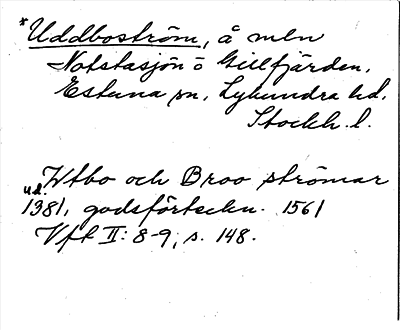 *Uddboström, å mln
Notstasjön o Gillfjärden,
Estuna sn, Lyhundra hd,
Stockh. l.
Wtbo och Broo strömar
ud. 1381, godsförteckn. 1561
Vft II: 8-9, s. 148.